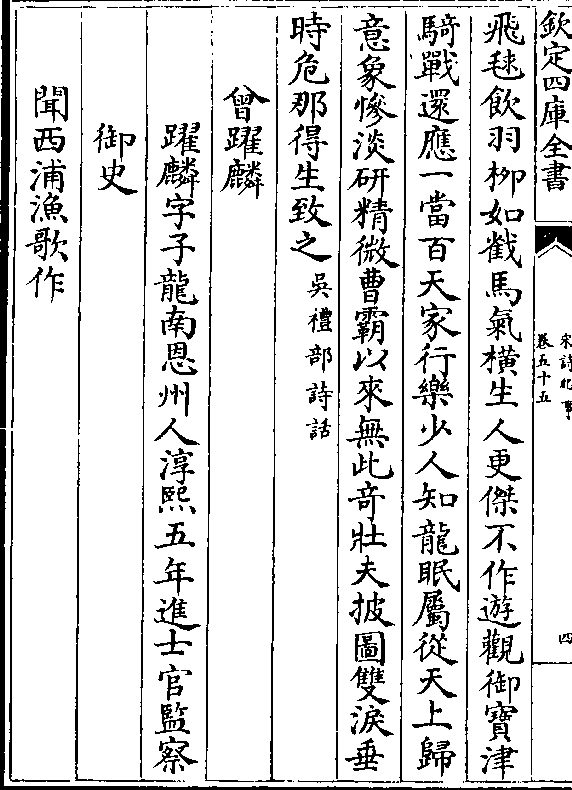 欽定四庫全書
宋詩紀事
卷五十五
四
飛毬飲羽栁如截馬氣橫生人更傑不作遊觀御寶津
騎戰還應一當百天家行樂少人知龍眠屬從天上歸
意象慘淡研精微曹霸以來無此竒壯夫披圖雙淚垂
時危那得生致之吳禮部詩話
曾躍麟
躍麟字子龍南恩州人淳熙五年進士官監察
御史
聞西浦漁歌作